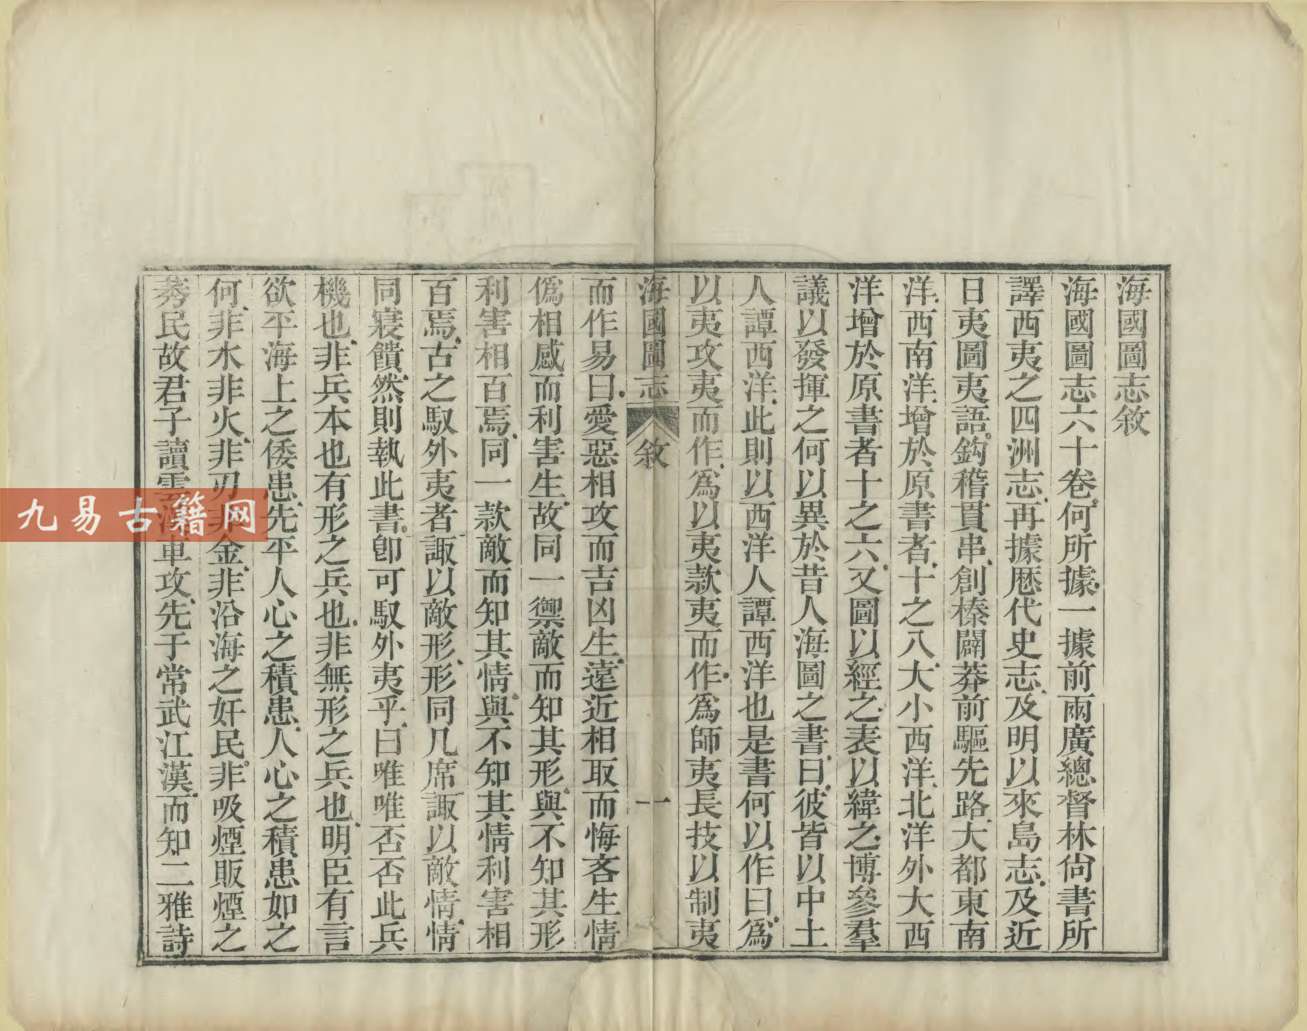 海國圖志敘
海國圖志六十卷何所據一據前兩廣總督林尙書所
譯西夷之四洲志再據歷代史志及明以來島志及近
日夷圖夷語鈎稽貫串創榛闢莽前驅先路大都東南
洋西南洋增於原書者十之八大小西洋北洋外大西
洋增於原書者十之六又圖以經之表以緯之博參羣
議以發揮之何以異於昔人海圖之書曰彼皆以中土
人譚西洋此則以西洋人譚西洋也是書何以作曰爲
以夷攻夷而作爲以夷款夷而作爲師夷長技以制夷
海國圖志 敘 一
而作易曰愛惡相攻而吉凶生遠近相取而悔吝生情
僞相感而利害生故同一禦敵而知其形與不知其形
利害相百焉同一款敵而知其情與不知其情利害相
百焉古之馭外夷者諏以敵形形同几席諏以敵情情
同寢饋然則執此書卽可馭外夷乎曰唯唯否否此兵
機也非兵本也有形之兵也非無形之兵也明臣有言
欲平海上之倭患先平人心之積患人心之積患如之
何非水非火非刃非金非沿海之奸民非吸煙販煙之
莠民故君子讀雲漢車攻先于常武江漢而知二雅詩
九易古籍网